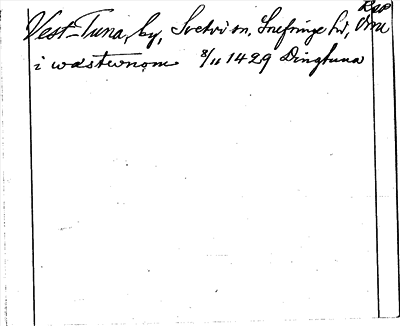 Vest-Tuna, by, Svedvi sn, Snefringe hd, Vml
i wæstwnom 8/11 1429 Dingtuna